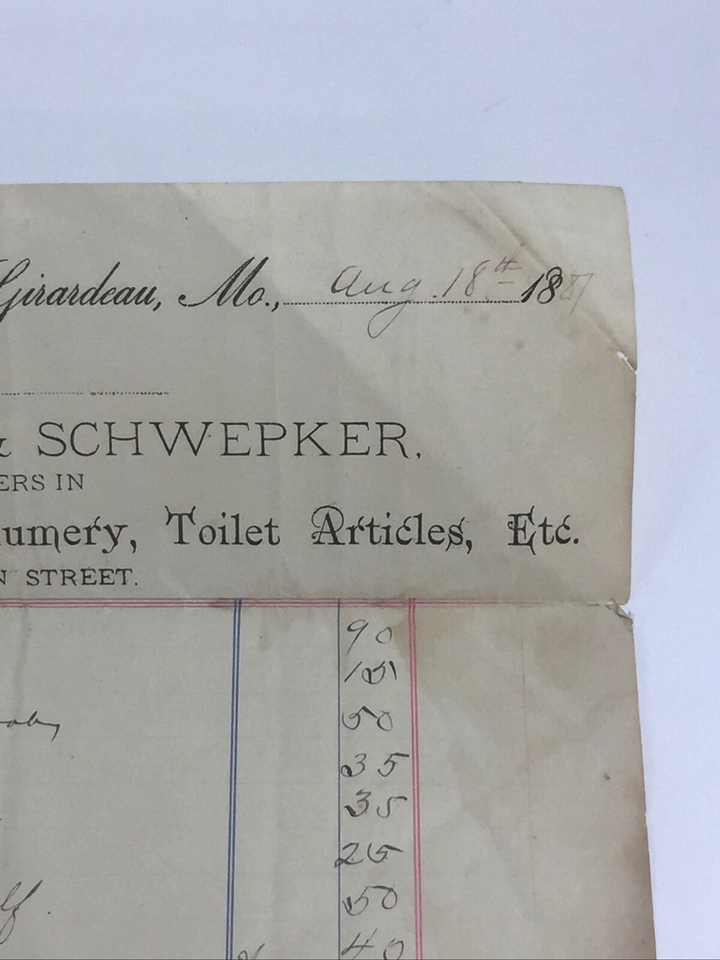 Girardeau, Mo., Aug. 18th 1887
& SCHWEPKER,
ERS IN
umery, Toilet Articles, Etc.
N STREET.
90
15
50
35
35
25
50
40